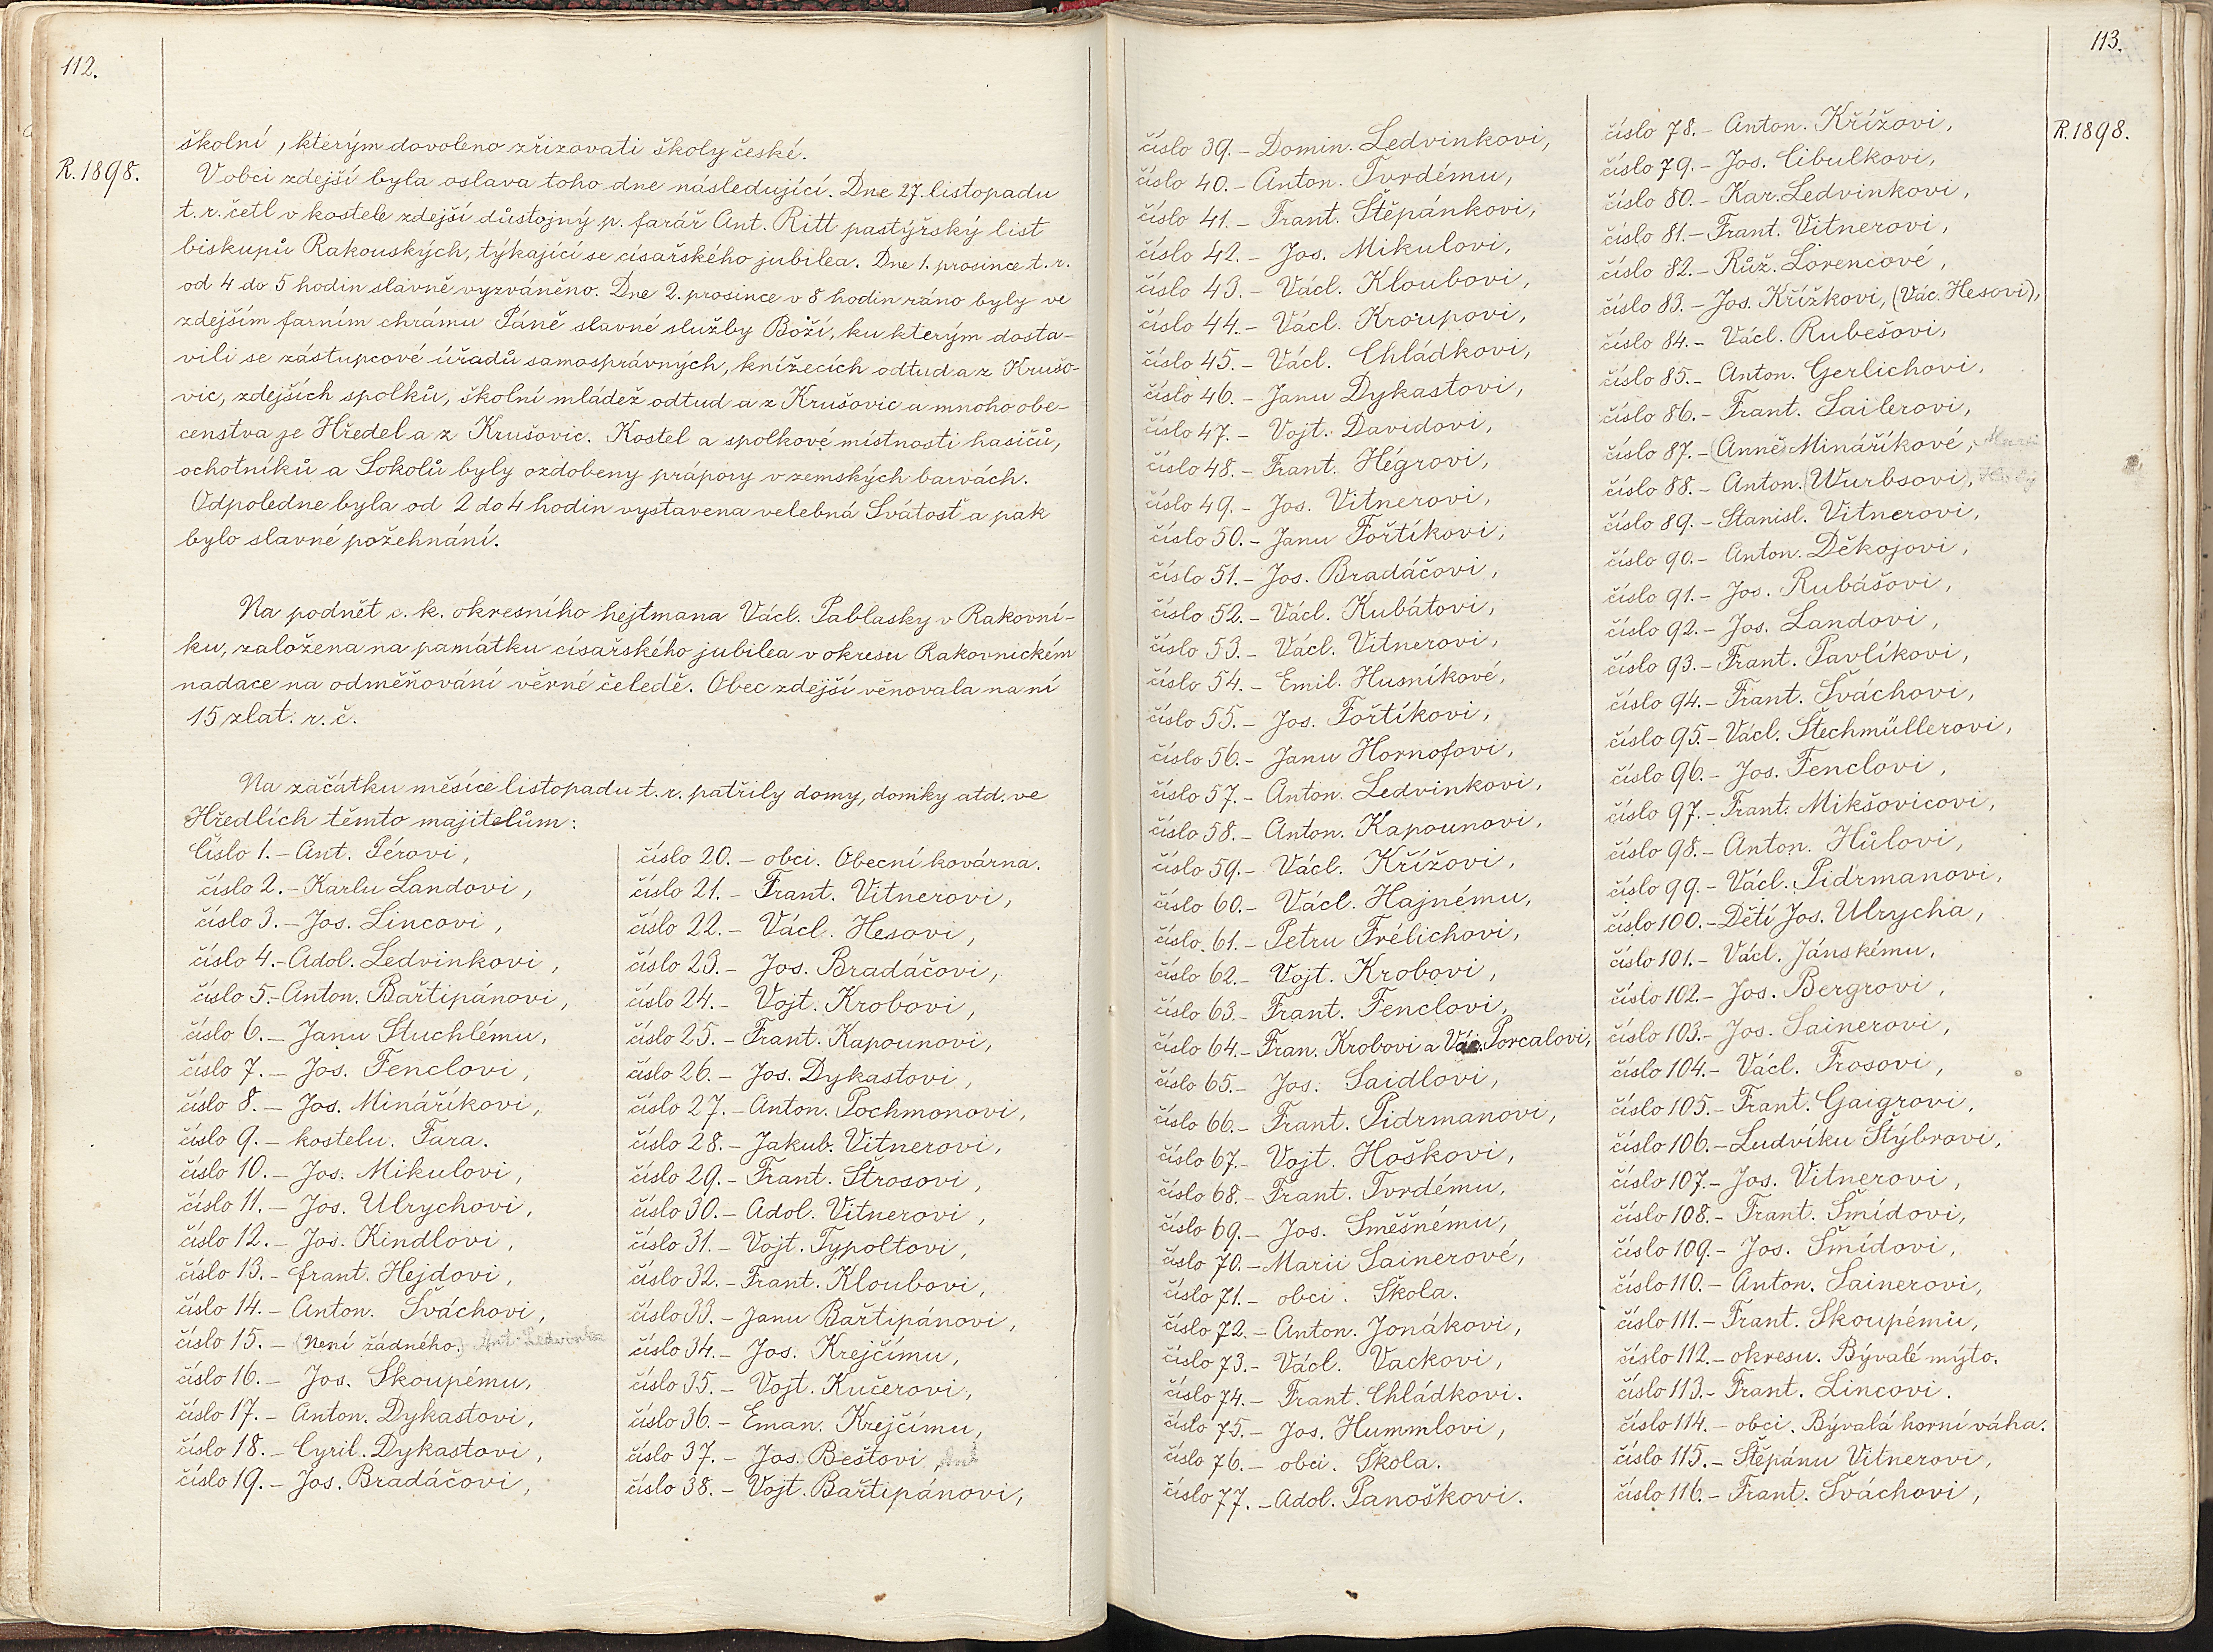 112.
R. 1898.
školní, kterým dovoleno zřizovati školy české.
V obci zdejší byla oslava toho dne následující. Dne 27. listopadu
t. r. četl v kostele zdejší důstojný p. farář Ant. Ritt pastýřský list
biskupů Rakouských, týkající se císařského jubilea. Dne 1. prosince t. r.
od 4 do 5 hodin slavně vyzváněno. Dne 2. prosince v 8 hodin ráno byly ve
zdejším farním chrámu Páně slavné služby Boží, ku kterým dosta-
vili se zástupcové úřadů samosprávných, knížecích odtud a z Krušo-
vic, zdejších spolků, školní mládež odtud a z Krušovic a mnoho obe-
censtva ze Hředel a z Krušovic. Kostel a spolkové místnosti hasičů,
ochotníků a Sokolů byly ozdobeny prápory v zemských barvách.
Odpoledne byla od 2 do 4 hodin vystavena velebná Svátosť a pak
bylo slavné požehnání.
Na podnět c. k. okresního hejtmana Václ. Pablasky v Rakovní-
ku, založena na památku císařského jubilea v okresu Rakovnickém
nadace na odměňování věrné čeledě. Obec zdejší věnovala na ní
15 zlat. r. č.
Na začátku měsíce listopadu t. r. patřily domy, domky atd. ve
Hředlích těmto majitelům:
Číslo 1. – Ant. Pérovi,
číslo 2. – Karlu Landovi,
číslo 3. – Jos. Lincovi,
číslo 4. – Adol. Ledvinkovi,
číslo 5. – Anton. Bařtipánovi,
číslo 6. – Janu Stuchlému,
číslo 7. – Jos. Fenclovi,
číslo 8. – Jos. Mináříkovi,
číslo 9. – kostelu. Fara.
číslo 10. – Jos. Mikulovi,
číslo 11. – Jos. Ulrychovi,
číslo 12. – Jos. Kindlovi,
číslo 13. – frant. Hejdovi,
číslo 14. – Anton. Šváchovi,
číslo 15. – (Není žádného.) Ant. Ledvinka
číslo 16. – Jos. Skoupému,
číslo 17. – Anton. Dykastovi,
číslo 18. – Cyril. Dykastovi,
číslo 19. – Jos. Bradáčovi,
číslo 20. – obci. Obecní kovárna.
číslo 21. – Frant. Vitnerovi,
číslo 22. – Václ. Hesovi,
číslo 23. – Jos. Bradáčovi,
číslo 24. – Vojt. Krobovi,
číslo 25. – Frant. Kapounovi,
číslo 26. – Jos. Dykastovi,
číslo 27. – Anton. Pochmonovi,
číslo 28. – Jakub. Vitnerovi,
číslo 29. – Frant. Štrosovi,
číslo 30. – Adol. Vitnerovi,
číslo 31. – Vojt. Typoltovi,
číslo 32. – Frant. Kloubovi,
číslo 33. – Janu Bařtipánovi,
číslo 34. – Jos. Krejčímu,
číslo 35. – Vojt. Kučerovi,
číslo 36. – Eman. Krejčímu,
číslo 37. – Jos. Beštovi, Ant
číslo 38. – Vojt. Bařtipánovi,
113.
R. 1898.
číslo 39. – Domin. Ledvinkovi,
číslo 40. – Anton. Tvrdému,
číslo 41. – Frant. Štěpánkovi,
číslo 42. – Jos. Mikulovi,
číslo 43. – Václ. Kloubovi,
číslo 44. – Václ. Kroupovi,
číslo 45. – Václ. Chládkovi,
číslo 46. – Janu Dykastovi,
číslo 47. – Vojt. Davidovi,
číslo 48. – Frant. Hégrovi,
číslo 49. – Jos. Vitnerovi,
číslo 50. – Janu Fořtíkovi,
číslo 51. – Jos. Bradáčovi,
číslo 52. – Václ. Kubátovi,
číslo 53. – Václ. Vitnerovi,
číslo 54. – Emil. Husníkové,
číslo 55. – Jos. Fořtíkovi,
číslo 56. – Janu Hornofovi,
číslo 57. – Anton. Ledvinkovi,
číslo 58. – Anton. Kapounovi,
číslo 59. – Václ. Křížovi,
číslo 60. – Václ. Hajnému,
číslo. 61. – Petru Frélichovi,
číslo 62. – Vojt. Krobovi,
číslo 63. – Frant. Fenclovi,
číslo 64. – Fran. Krobovi a Vác. Porcalovi,
číslo 65. – Jos. Saidlovi,
číslo 66. – Frant. Pidrmanovi,
číslo 67. – Vojt. Hoškovi,
číslo 68. – Frant. Tvrdému,
číslo 69. – Jos. Směšnému,
číslo 70. – Marii Sainerové,
číslo 71. – obci. Škola.
číslo 72. – Anton. Jonákovi,
číslo 73. – Václ. Vackovi,
číslo 74. – Frant. Chládkovi.
číslo 75. – Jos. Hummlovi,
číslo 76. – obci. Škola.
číslo 77. – Adol. Panoškovi.
číslo 78. – Anton. Křížovi,
číslo 79. – Jos. Cibulkovi,
číslo 80. – Kar. Ledvinkovi,
číslo 81. – Frant. Vitnerovi,
číslo 82. – Růž. Lorencové,
číslo 83. – Jos. Křížkovi, (Vác. Hesovi),
číslo 84. – Václ. Rubešovi,
číslo 85. – Anton. Gerlichovi,
číslo 86. – Frant. Sailerovi,
číslo 87. – (Anně) Mináříkové,
číslo 88. – Anton. (Wurbsovi),
číslo 89. – Stanisl. Vitnerovi,
číslo 90. – Anton. Děkojovi,
číslo 91. – Jos. Rubášovi,
číslo 92. – Jos. Landovi,
číslo 93. – Frant. Pavlíkovi,
číslo 94. – Frant. Šváchovi,
číslo 95. – Václ. Štechmüllerovi,
číslo 96. – Jos. Fenclovi,
číslo 97. – Frant. Mikšovicovi,
číslo 98. – Anton. Hůlovi,
číslo 99. – Václ. Pidrmanovi,
číslo 100. – Dětí Jos. Ulrycha,
číslo 101. – Václ. Jánskému,
číslo 102. – Jos. Bergrovi,
číslo 103. – Jos. Sainerovi,
číslo 104. – Václ. Frosovi,
číslo 105. – Frant. Gaigrovi,
číslo 106. – Ludvíku Štýbrovi,
číslo 107. – Jos. Vitnerovi,
číslo 108. – Frant. Šmídovi,
číslo 109. – Jos. Šmídovi,
číslo 110. – Anton. Sainerovi,
číslo 111. – Frant. Skoupému,
číslo 112. – okresu. Bývalé mýto.
číslo 113. – Frant. Lincovi.
číslo 114. – obci. Bývalá horní váha.
číslo 115. – Štěpánu Vitnerovi,
číslo 116. – Frant. Šváchovi,